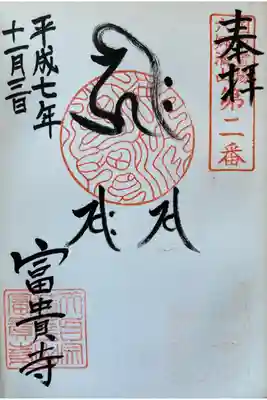 奉拝
第二番
ह्रीः
स सः
平成七年
十一月三日
富貴寺